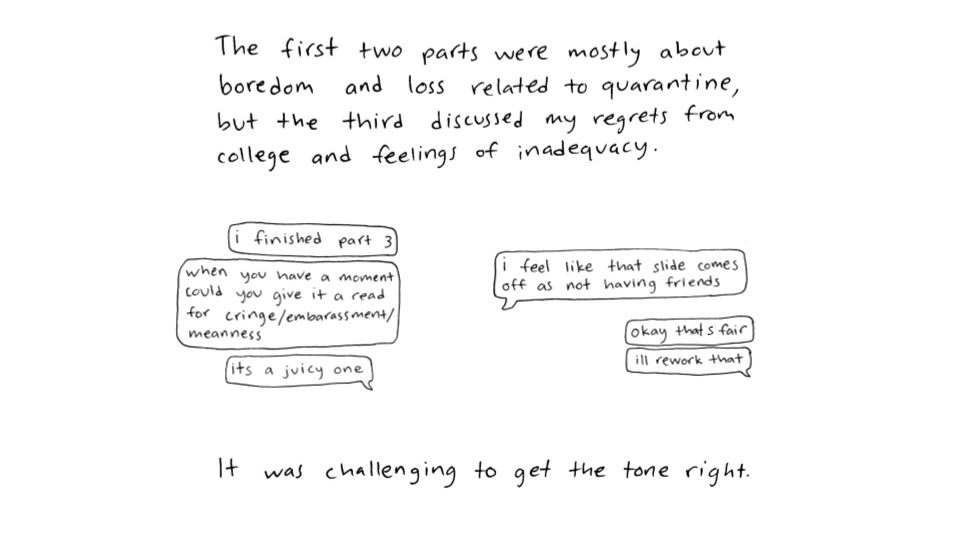 The first two parts were mostly about
boredom and loss related to quarantine,
but the third discussed my regrets from
college and feelings of inadequacy.
i finished part 3
when you have a moment
could you give it a read
for cringe/embarassment/
meanness
its a juicy one
i feel like that slide comes
off as not having friends
okay thats fair
ill rework that
It was challenging to get the tone right.